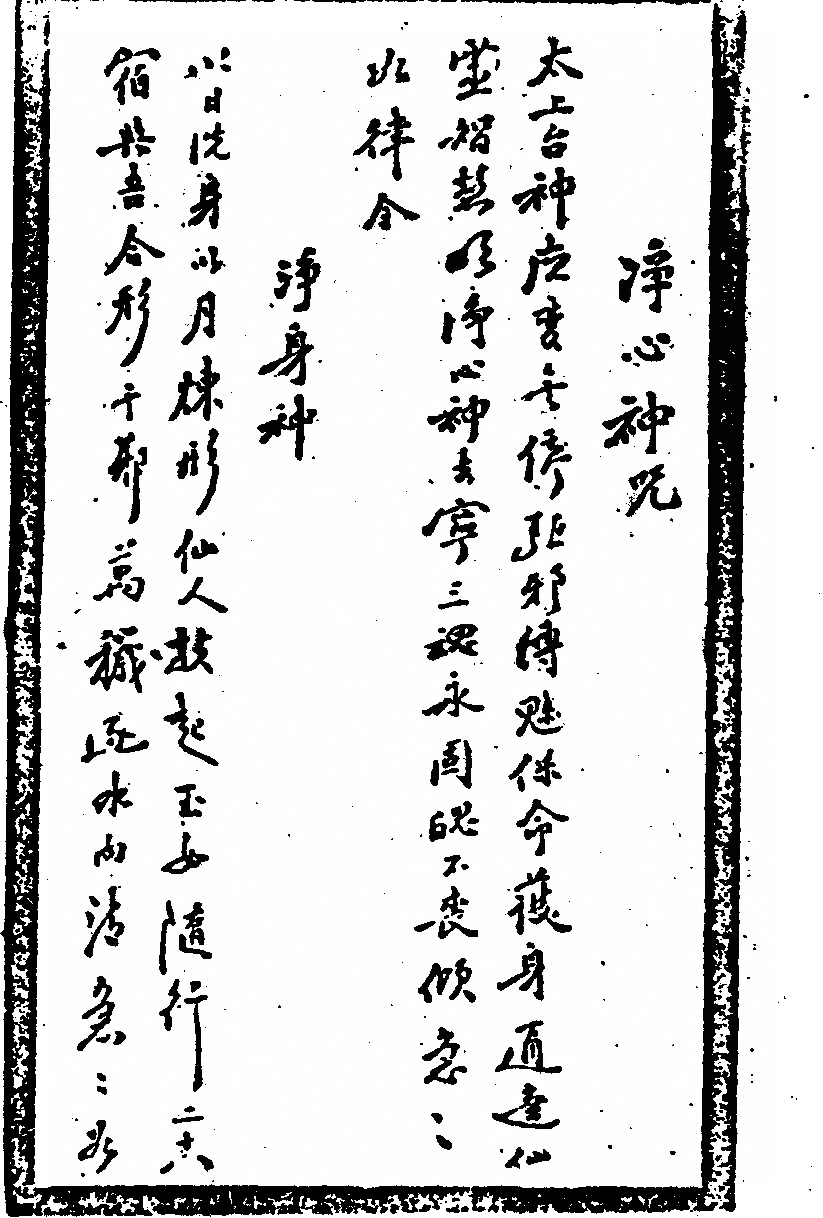 净心神咒
太上台神应变无停驱邪缚魅保命護身道達仙
灵智慧明净心神安寧三魂永固魄不丧倾急〻
如律令
净身神
以日洗身以月煉形仙人扶起玉女随行二十八
宿與吾合形千邪萬穢逐水而清急〻如